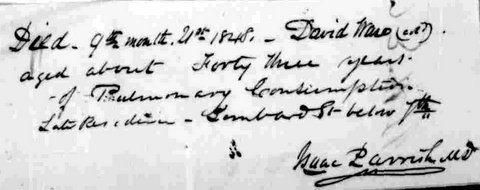 Died - 9th month. 21st 1848. - David Ware (col'd).
aged about Forty three years.
- of Pulmonary Consumption.
Late Residence - Lombard St. below 7th
Isaac Parrish M.D